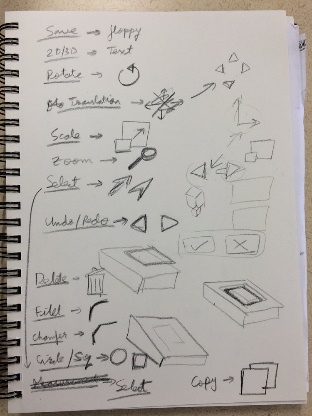 Save → floppy
2D/3D → Text
Rotate →
Translation →
Scale →
Zoom →
Select →
Undo/Redo →
Delete →
Fillet →
Chamfer →
Circle/Sq →
Select
Copy →